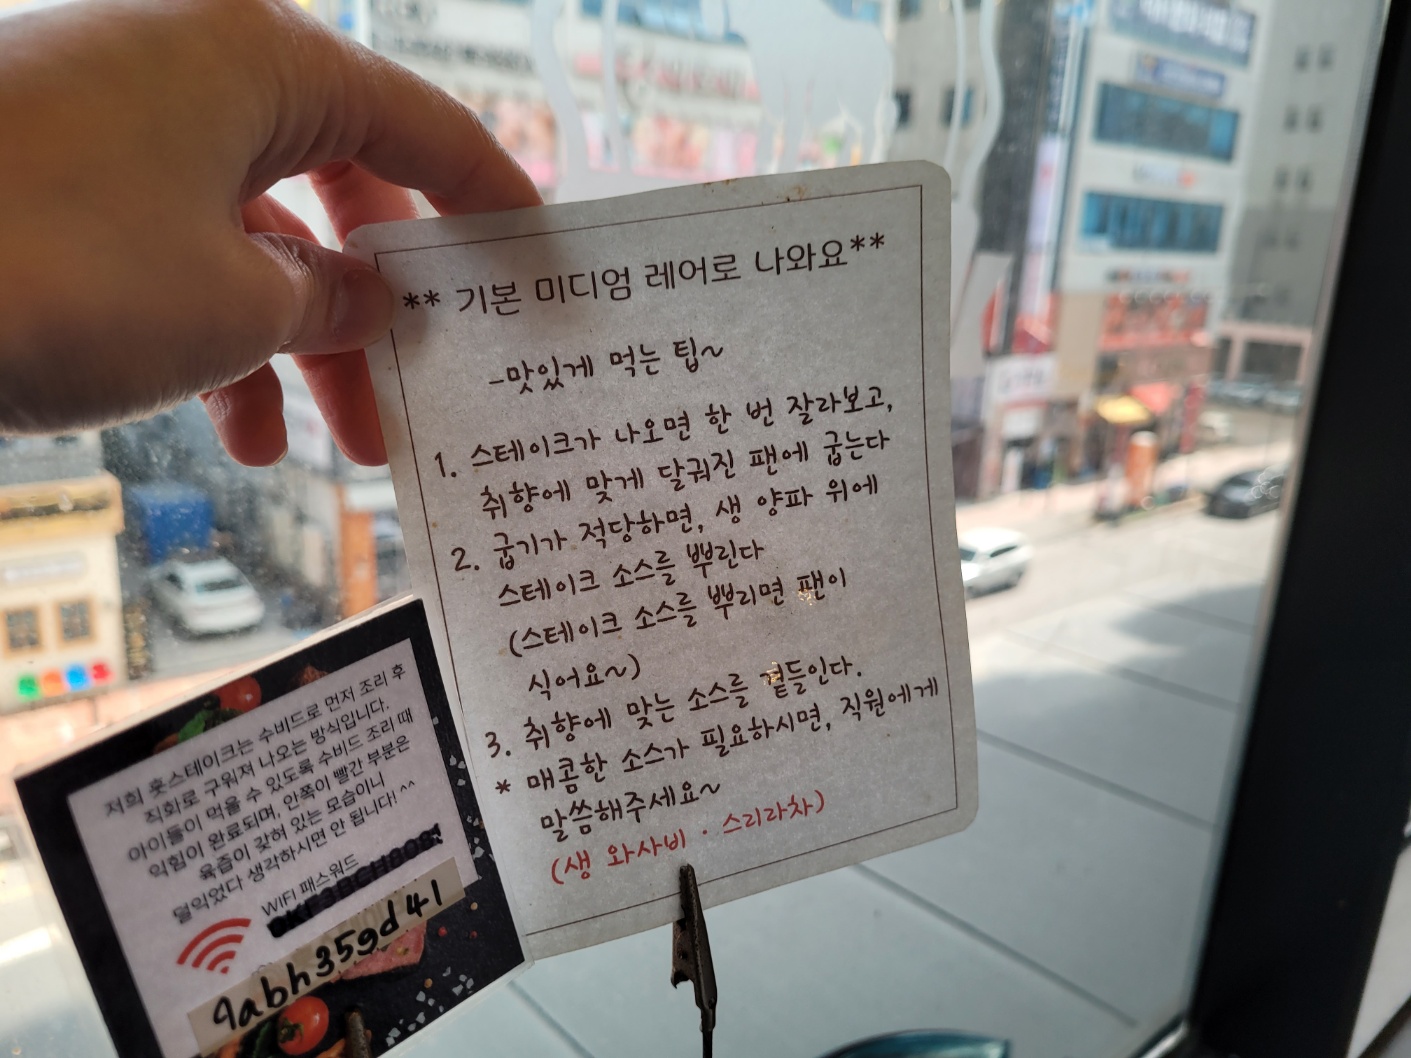 ** 기본 미디엄 레어로 나와요**
-맛있게 먹는 팁~
1. 스테이크가 나오면 한 번 잘라보고,
취향에 맞게 달궈진 팬에 굽는다
2. 굽기가 적당하면, 생 양파 위에
스테이크 소스를 뿌린다
(스테이크 소스를 뿌리면 팬이
식어요~)
3. 취향에 맞는 소스를 곁들인다.
* 매콤한 소스가 필요하시면, 직원에게
말씀해주세요~
(생 와사비 · 스리라차)
저희 훗스테이크는 수비드로 먼저 조리 후
직화로 구워져 나오는 방식입니다.
아이들이 먹을 수 있도록 수비드 조리 때
익힘이 완료되며, 안쪽이 빨간 부분은
육즙이 갖혀 있는 모습이니
덜익었다 생각하시면 안 됩니다! ^^
WIFI 패스워드
9abh359d41